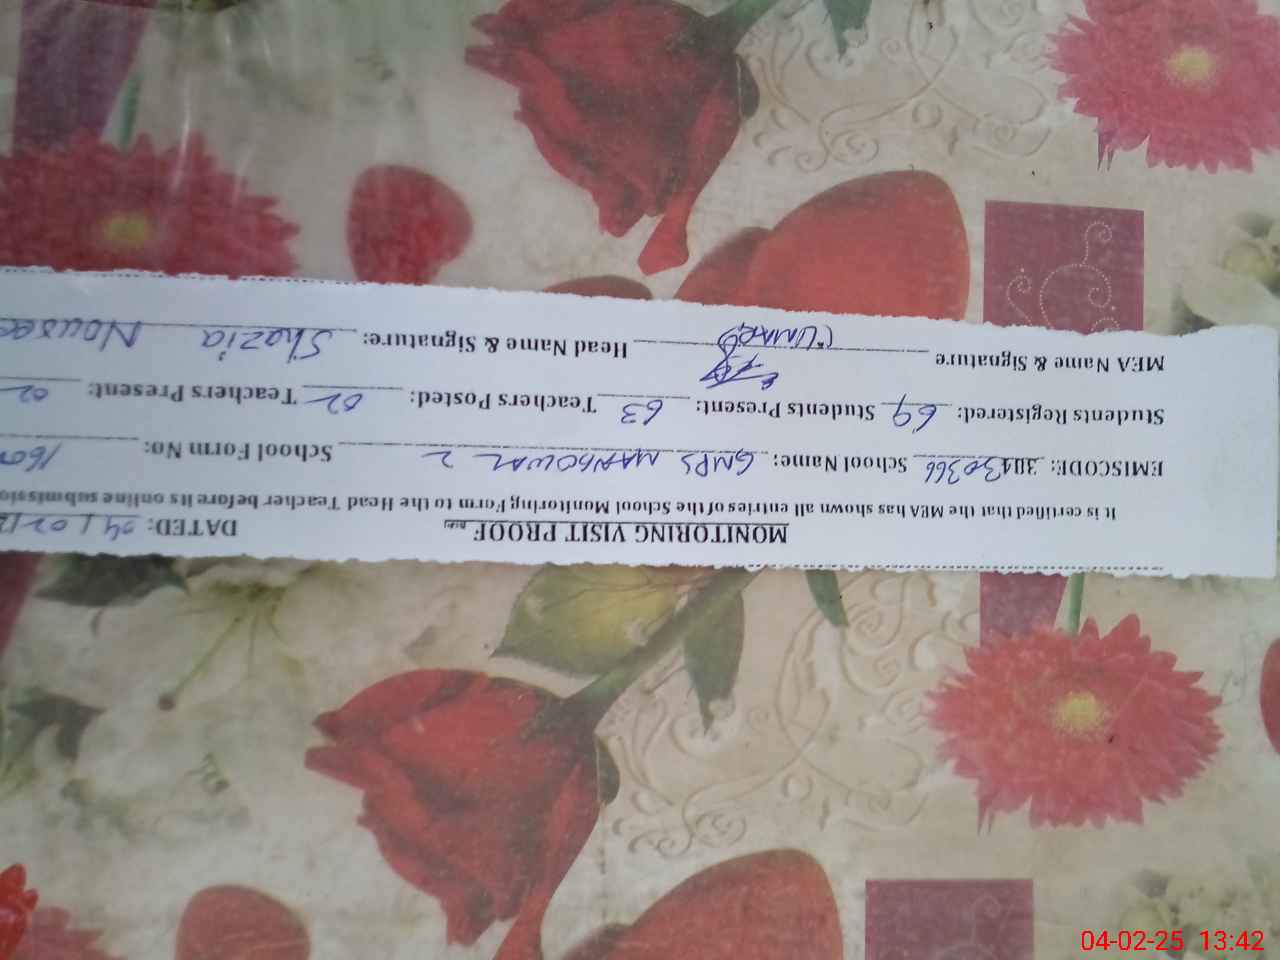 MONITORING VISIT PROOF DATED: 04/02/
It is certified that the MEA has shown all entries of the School Monitoring Form to the Head Teacher before its online submissio
EMISCODE: 38430366 School Name: GMPS MANGOWAL 2 School Form No: 160
Students Registered: 69 Students Present: 63 Teachers Posted: 02 Teachers Present: 02
MEA Name & Signature (UMAR) Head Name & Signature: Shazia
04-02-25 13:42